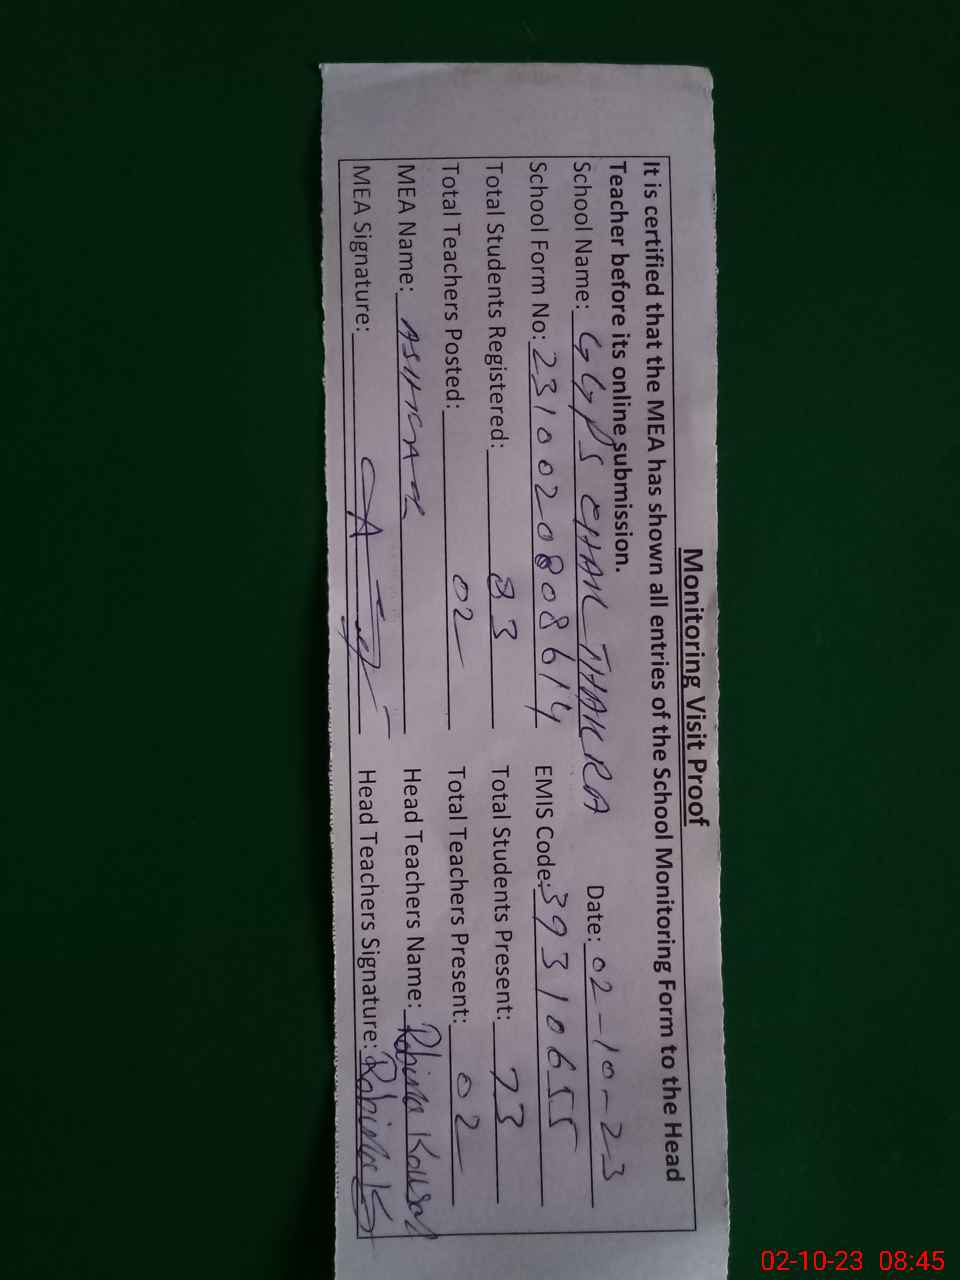 Monitoring Visit Proof
It is certified that the MEA has shown all entries of the School Monitoring Form to the Head
Teacher before its online submission.
School Name: GGPS CHAK THAKRA Date: 02-10-23
School Form No: 2310020808614 EMIS Code: 39310655
Total Students Registered: 83 Total Students Present: 73
Total Teachers Posted: 02 Total Teachers Present: 02
MEA Name: Head Teachers Name: Robina Kousar
MEA Signature: Head Teachers Signature: Robina K
02-10-23 08:45